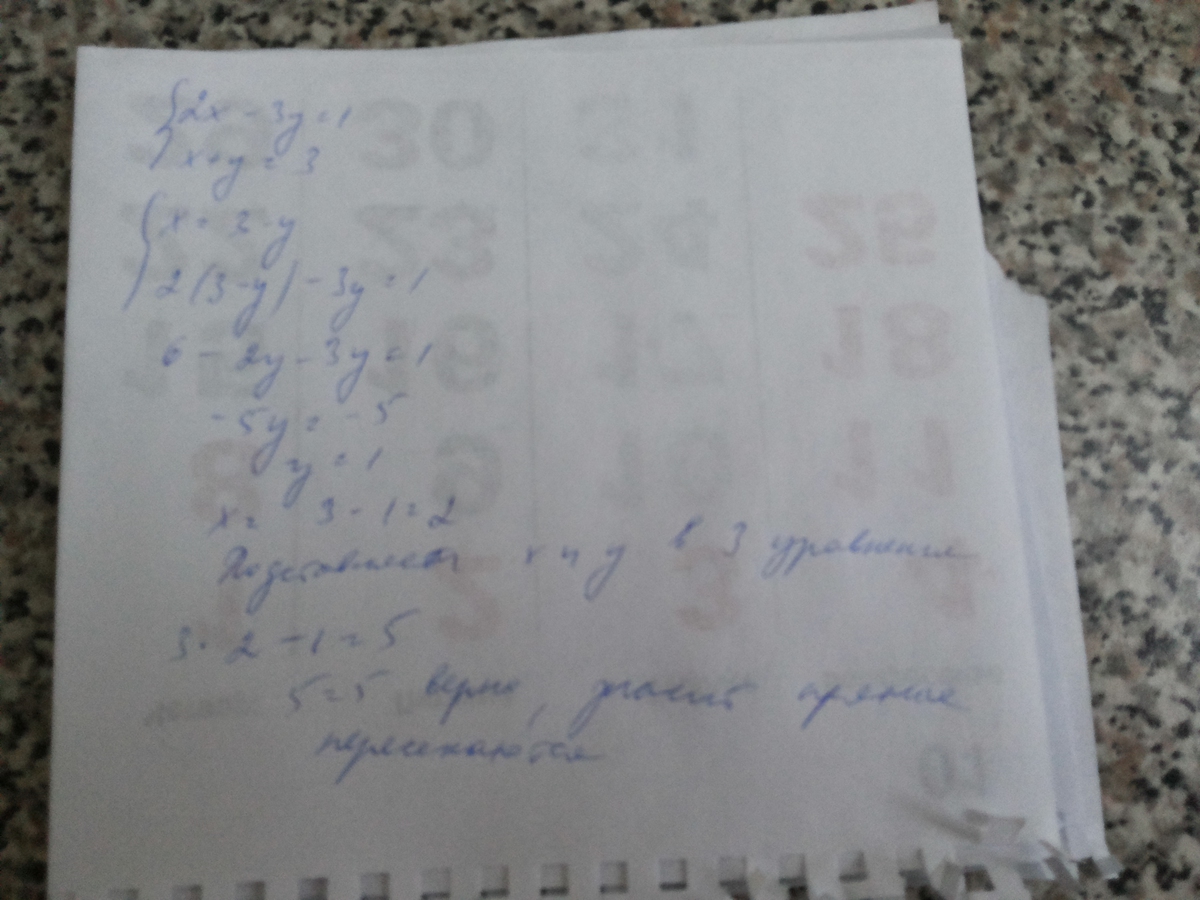 2x - 3y = 1
x + y = 3
x = 3 - y
2(3 - y) - 3y = 1
6 - 2y - 3y = 1
-5y = -5
y = 1
x = 3 - 1 = 2
Подставляем x и y в 3 уравнение
3 · 2 - 1 = 5
5 = 5 верно, значит прямые
пересекаются